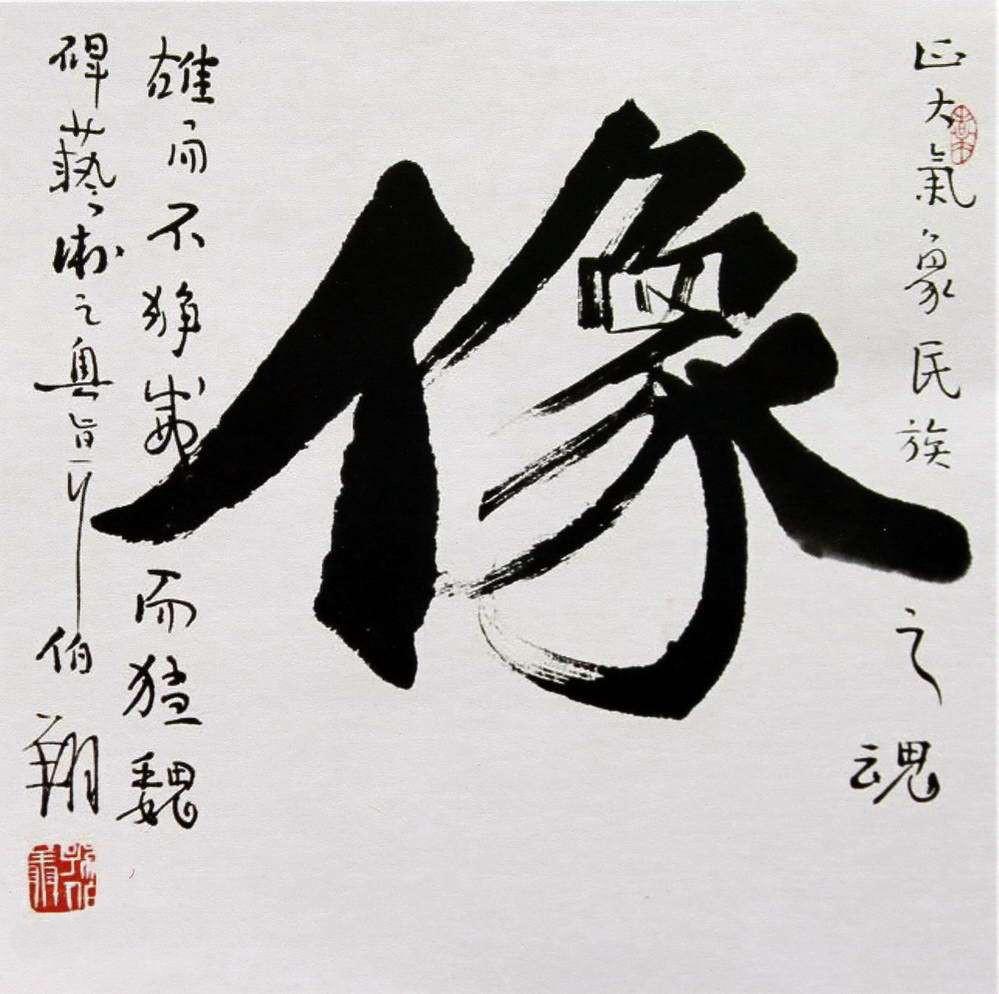 正大氣象民族之魂
像
雄而不猙威而猛魏
碑藝術之奥旨耳伯翔